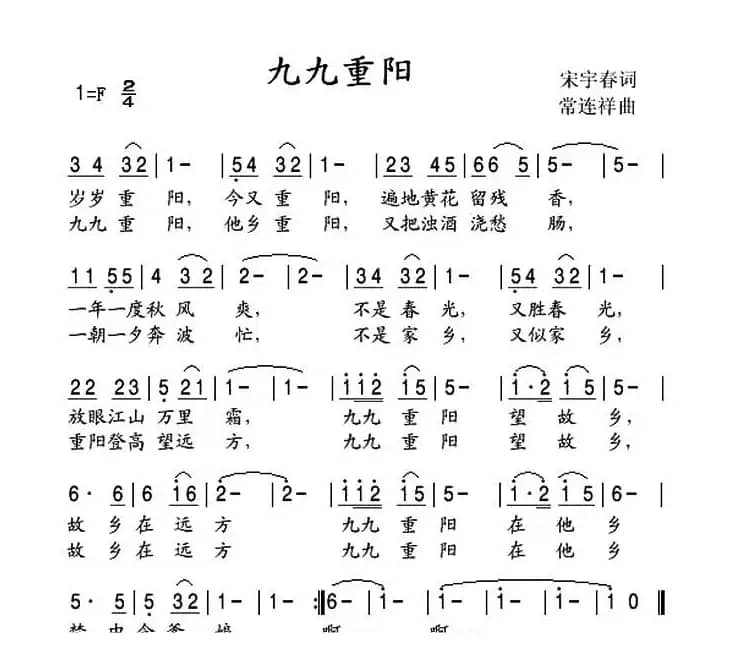 九九重阳
1=F 2/4
宋宇春词
常连祥曲
3 4 32 | 1- | 54 32 | 1- | 23 45 | 66 5 | 5- | 5- |
岁岁重阳，今又重阳，遍地黄花留残香，
九九重阳，他乡重阳，又把浊酒浇愁肠，
11 55 | 4 32 | 2- | 2- | 34 32 | 1- | 54 32 | 1- |
一年一度秋风爽，不是春光，又胜春光，
一朝一夕奔波忙，不是家乡，又似家乡，
22 23 | 5 21 | 1- | 1- | i i2 i5 | 5- | i·2 i5 |
放眼江山万里霜，九九重阳望故乡，
重阳登高望远方，九九重阳望故乡，
6· 6 | 6 i6 | 2- | 2- | i i2 i5 | 5- | i·2 i5 |
故乡在远方九九重阳在他乡
故乡在远方九九重阳在他乡
5· 5 | 5 32 | 1- | 1- :‖ 6- | i- | i- | i- | i- | i 0 ‖
啊啊